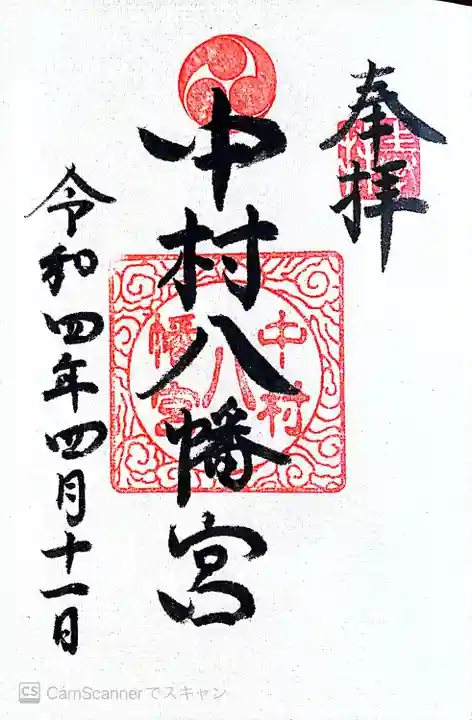 奉拝
中村八幡宮
中村
八
幡宮
令和四年四月十一日
CS CamScannerでスキャン